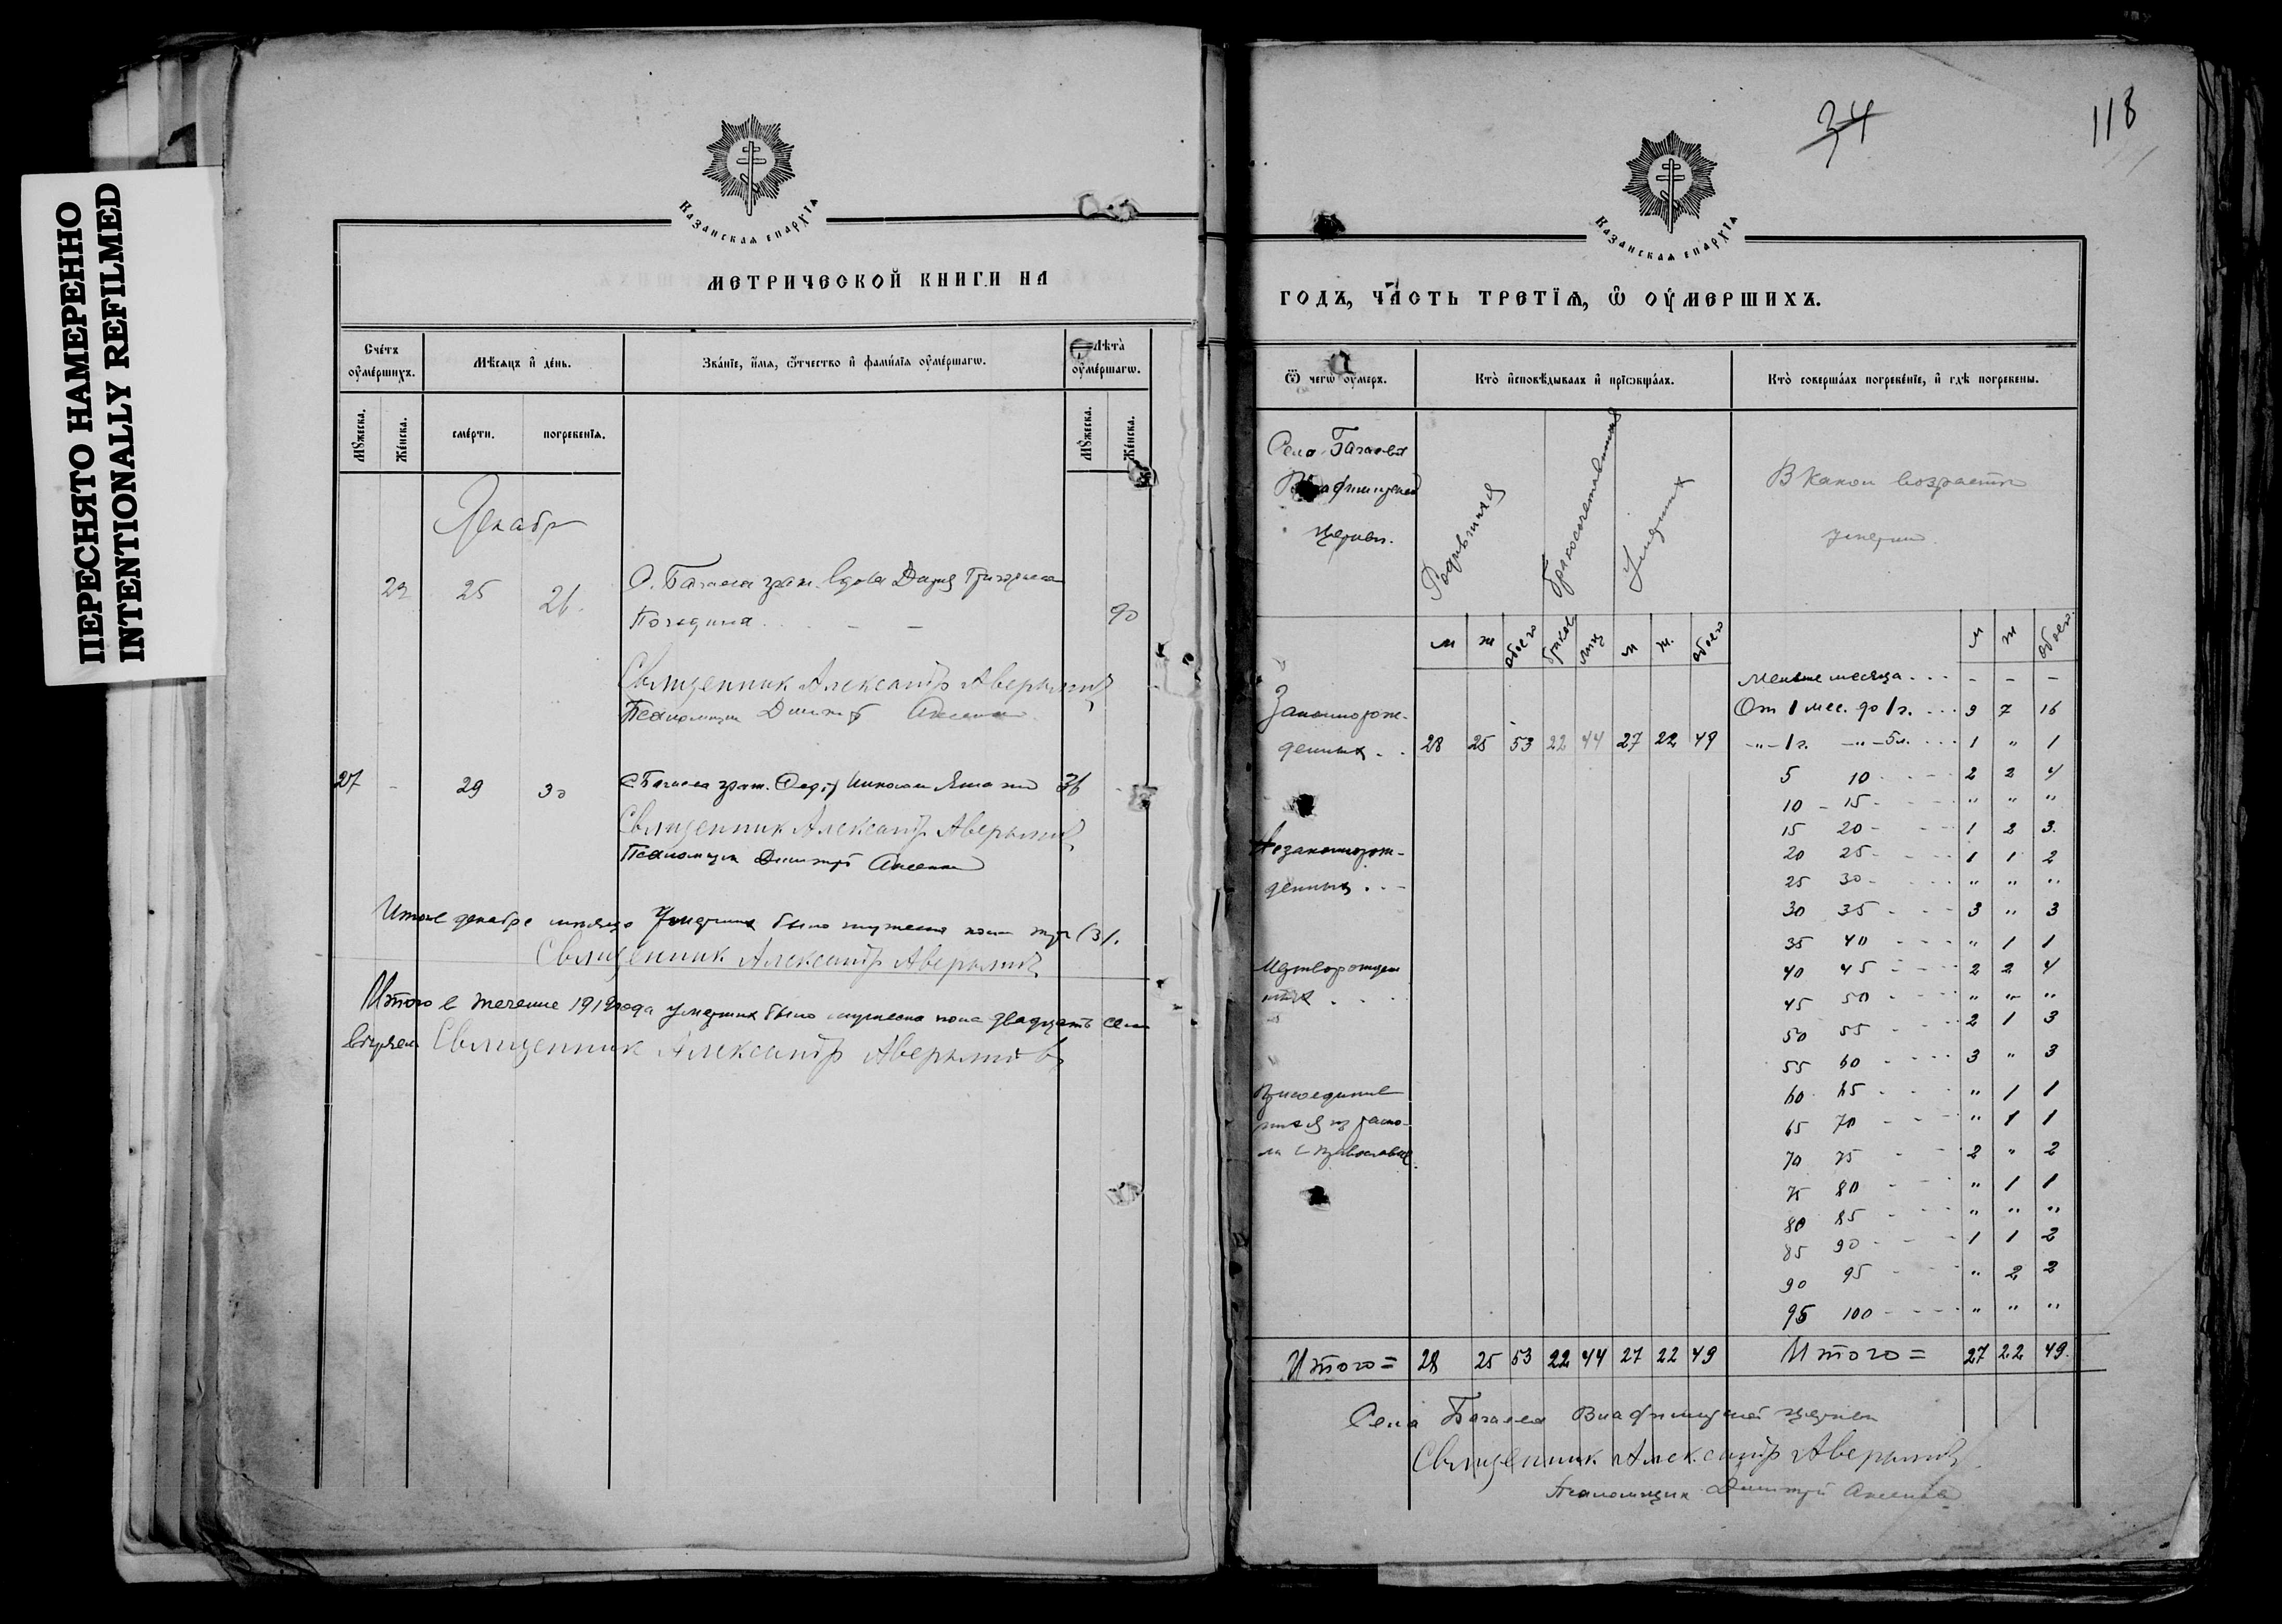 ПЕРЕСНЯТО НАМЕРЕННО
INTENTIONALLY REFILMED
Казанская епархїѧ
МЕТРИЧЕСКОЙ КНИГИ НА
Счетъ ᲂумершихъ.
Мѣсяцъ и день.
Званїе, имя, ѿтчество и фамилїѧ ᲂумершагѡ.
Лѣта ᲂумершагѡ.
Мꙋжеска.
Женска.
смерти.
погребенїѧ.
Мꙋжеска.
Женска.
Декабр
22 25 26.
С. Багаева граж. вдова Дария Григорьева
90
Священник Александр Аверьянов
Псаломщик Димитрий
27 - 29 30 С Багаева граж. 36
Священник Александр Аверьянов
Псаломщик Димитрий
Итого в декабре месяце умерших было мужеска пола три (3).
Священник Александр Аверьянов
Итого в течение 1919 года умерших было мужеска пола двадцать семь
Священник Александр Аверьянов
34
118
Казанская епархїѧ
ГОДЪ, ЧАСТЬ ТРЕТЇѦ, Ѡ ОУМЕРШИХЪ.
Ѿ чегѡ ᲂумеръ.
Кто исповѣдывалъ и прїѡбщалъ.
Кто совершалъ погребенїе, и гдѣ погребены.
Села Багаева
церкви.
Родившихся
Бракосочетавшихся
Умерших
В каком возрасте
умерли.
м ж обоего браков лиц м ж. обоего
м ж обоего
Меньше месяца . . . - - -
От 1 мес. до 1 г. . . . 9 7 16
Законнорож-
денных . . 28 25 53 22 44 27 22 49
-"- 1 г. -"- 5 л. . . . 1 " 1
5 10 2 2 4
10 - 15 " " "
15 20 1 2 3.
Незаконнорож-
20 25 1 1 2
денных . . -
25 30 " " "
30 35 3 " 3
35 40 " 1 1
Мертворожден
ных . . .
40 45 2 2 4
45 50 " " "
50 55 2 1 3
55 60 3 " 3
Присоединив
шихся из раско-
ла к православию.
60 65 " 1 1
65 70 " 1 1
70 75 2 " 2
75 80 " 1 1
80 85 " " "
85 90 1 1 2
90 95 " 2 2
95 100 " " "
Итого = 28 25 53 22 44 27 22 49 Итого = 27 22 49.
Села Багаева церкви
Священник Александр Аверьянов
Псаломщик Димитрий